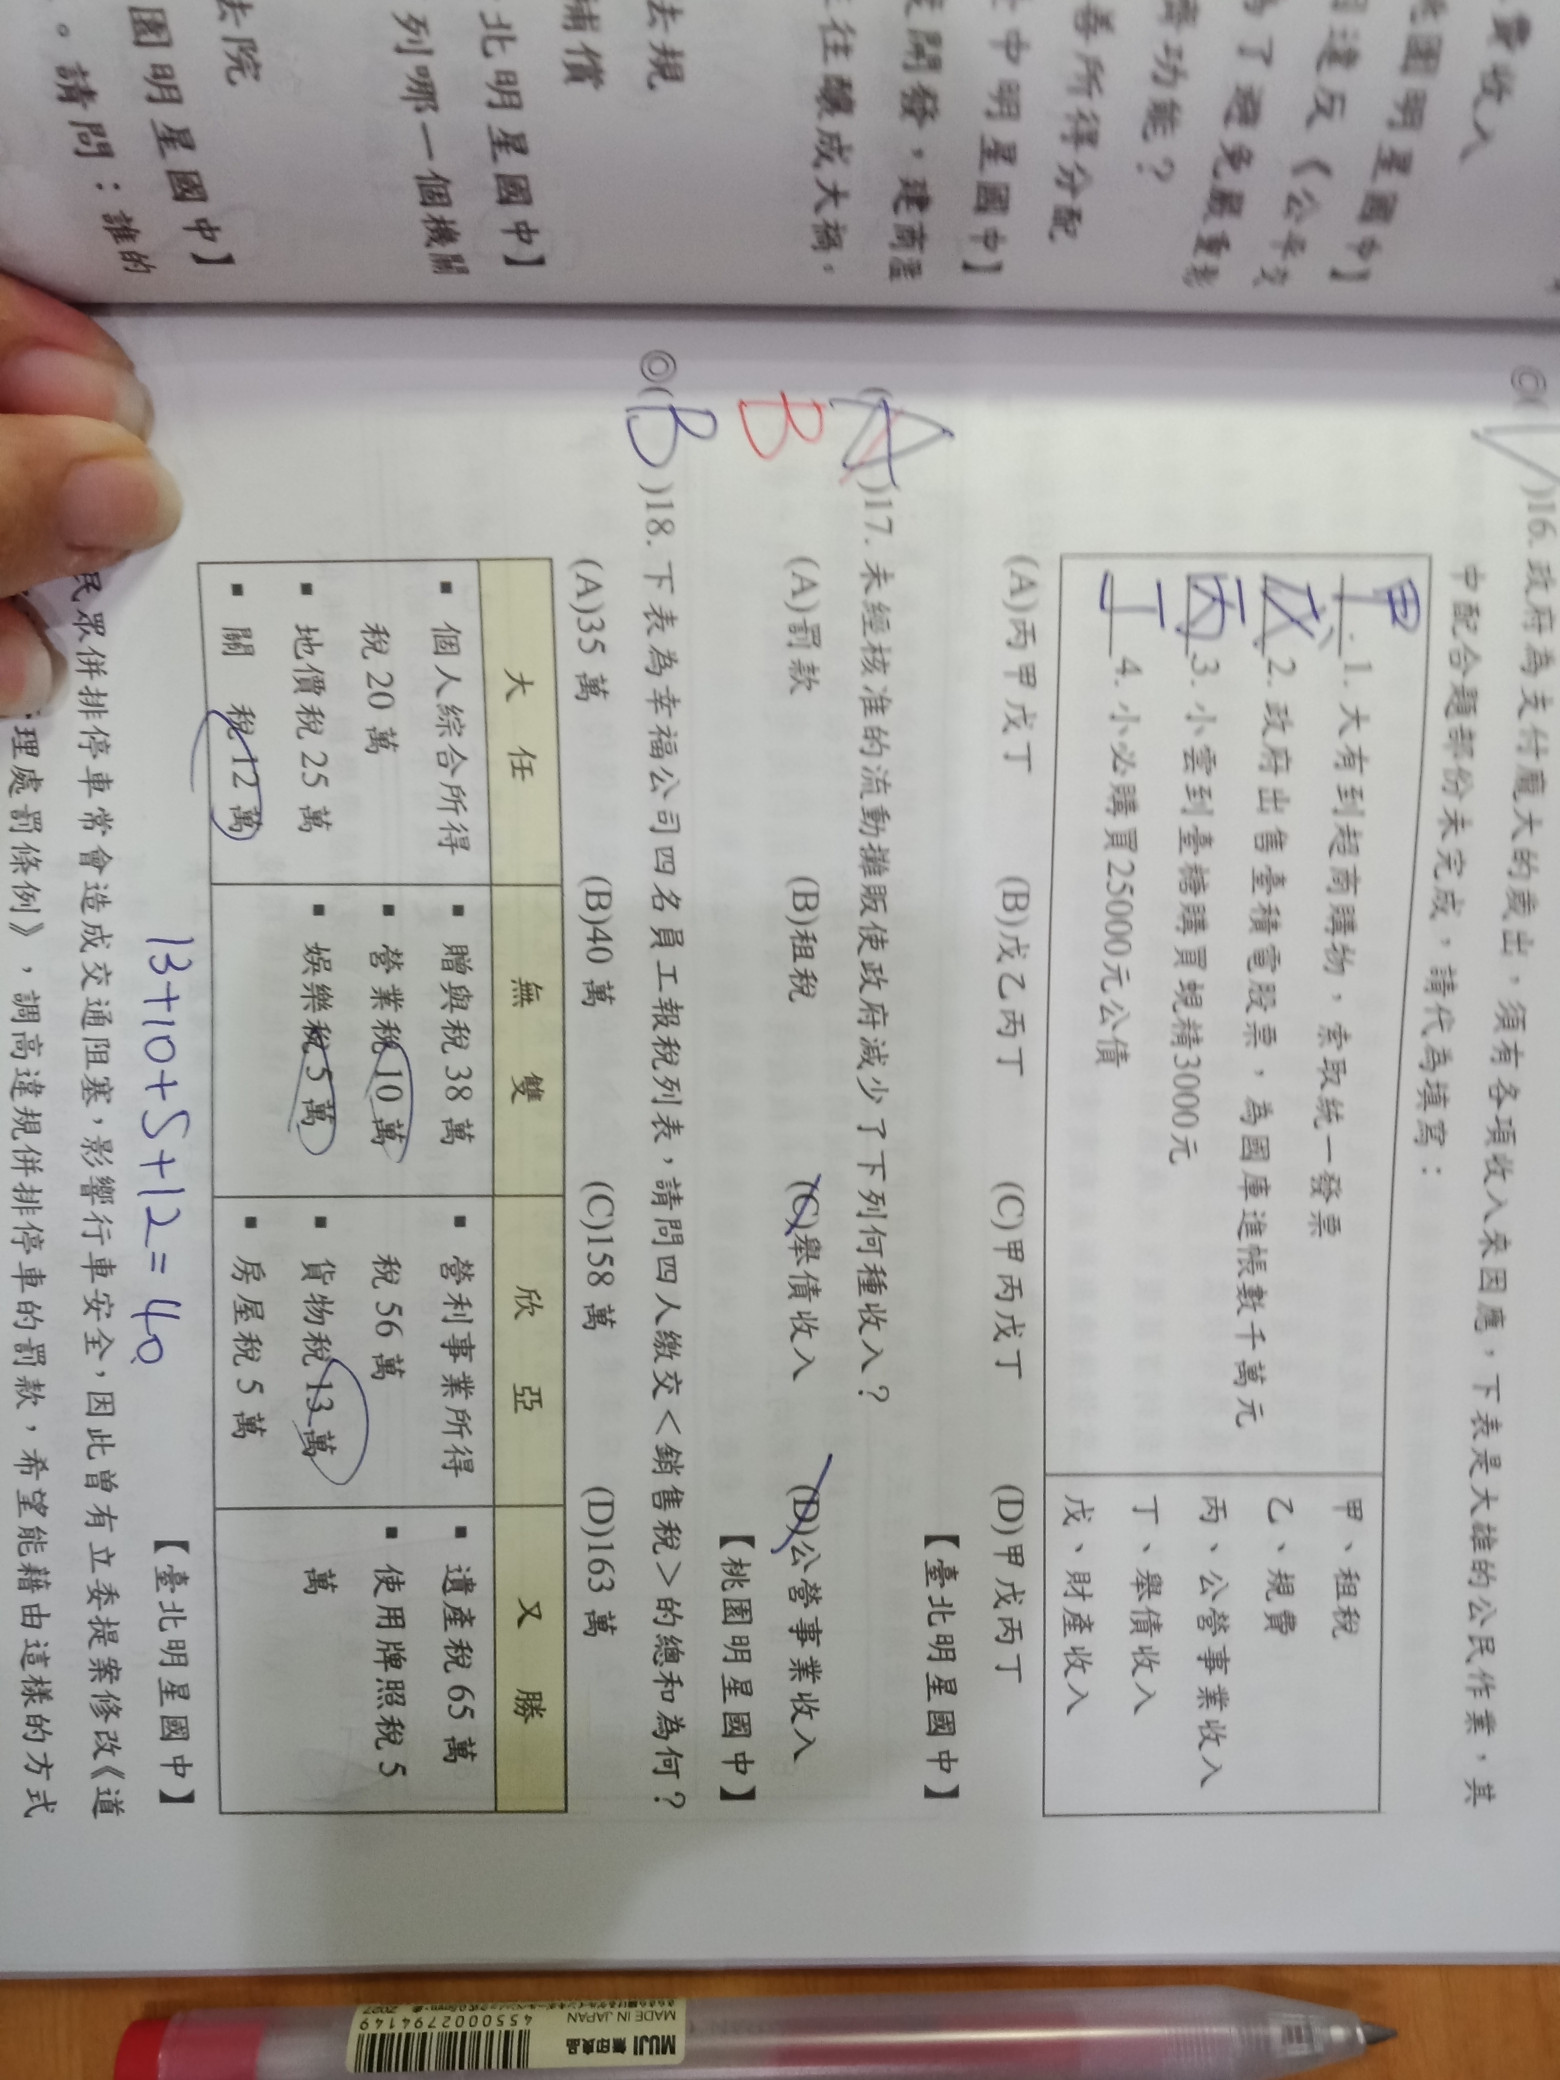 費收入
園明星國中】
違反《公平交
為了避免嚴重影
濟功能？
善所得分配
中明星國中】
開發，建商濫
往釀成大禍，
去規
補償
北明星國中】
列哪一個機關
去院
園明星國中】
。請問：誰的
◎( )16. 政府為支付龐大的歲出，須有各項收入來因應，下表是大雄的公民作業，其
中配合題部份未完成，請代為填寫：
甲 1. 大有到超商購物，索取統一發票
戊 2. 政府出售臺積電股票，為國庫進帳數千萬元
丙 3. 小雲到臺糖購買蜆精3000元
丁 4. 小必購買25000元公債
甲、租稅
乙、規費
丙、公營事業收入
丁、舉債收入
戊、財產收入
(A)丙甲戊丁 (B)戊乙丙丁 (C)甲丙戊丁 (D)甲戊丙丁
【臺北明星國中】
(A)17. 未經核准的流動攤販使政府減少了下列何種收入？
B
(A)罰款 (B)租稅 (C)舉債收入 (D)公營事業收入
【桃園明星國中】
◎(B)18. 下表為幸福公司四名員工報稅列表，請問四人繳交＜銷售稅＞的總和為何？
(A)35 萬 (B)40 萬 (C)158 萬 (D)163 萬
大 任 無 雙 欣 亞 又 勝
▪ 個人綜合所得
稅 20 萬
▪ 地價稅 25 萬
▪ 關 稅 12 萬
▪ 贈與稅 38 萬
▪ 營業稅 10 萬
▪ 娛樂稅 5 萬
▪ 營利事業所得
稅 56 萬
▪ 貨物稅 13 萬
▪ 房屋稅 5 萬
▪ 遺產稅 65 萬
▪ 使用牌照稅 5
萬
13+10+5+12=40
【臺北明星國中】
民眾併排停車常會造成交通阻塞，影響行車安全，因此曾有立委提案修改《道
理處罰條例》，調高違規併排停車的罰款，希望能藉由這樣的方式
MUJI 無印良品
MADE IN JAPAN
4550002794149